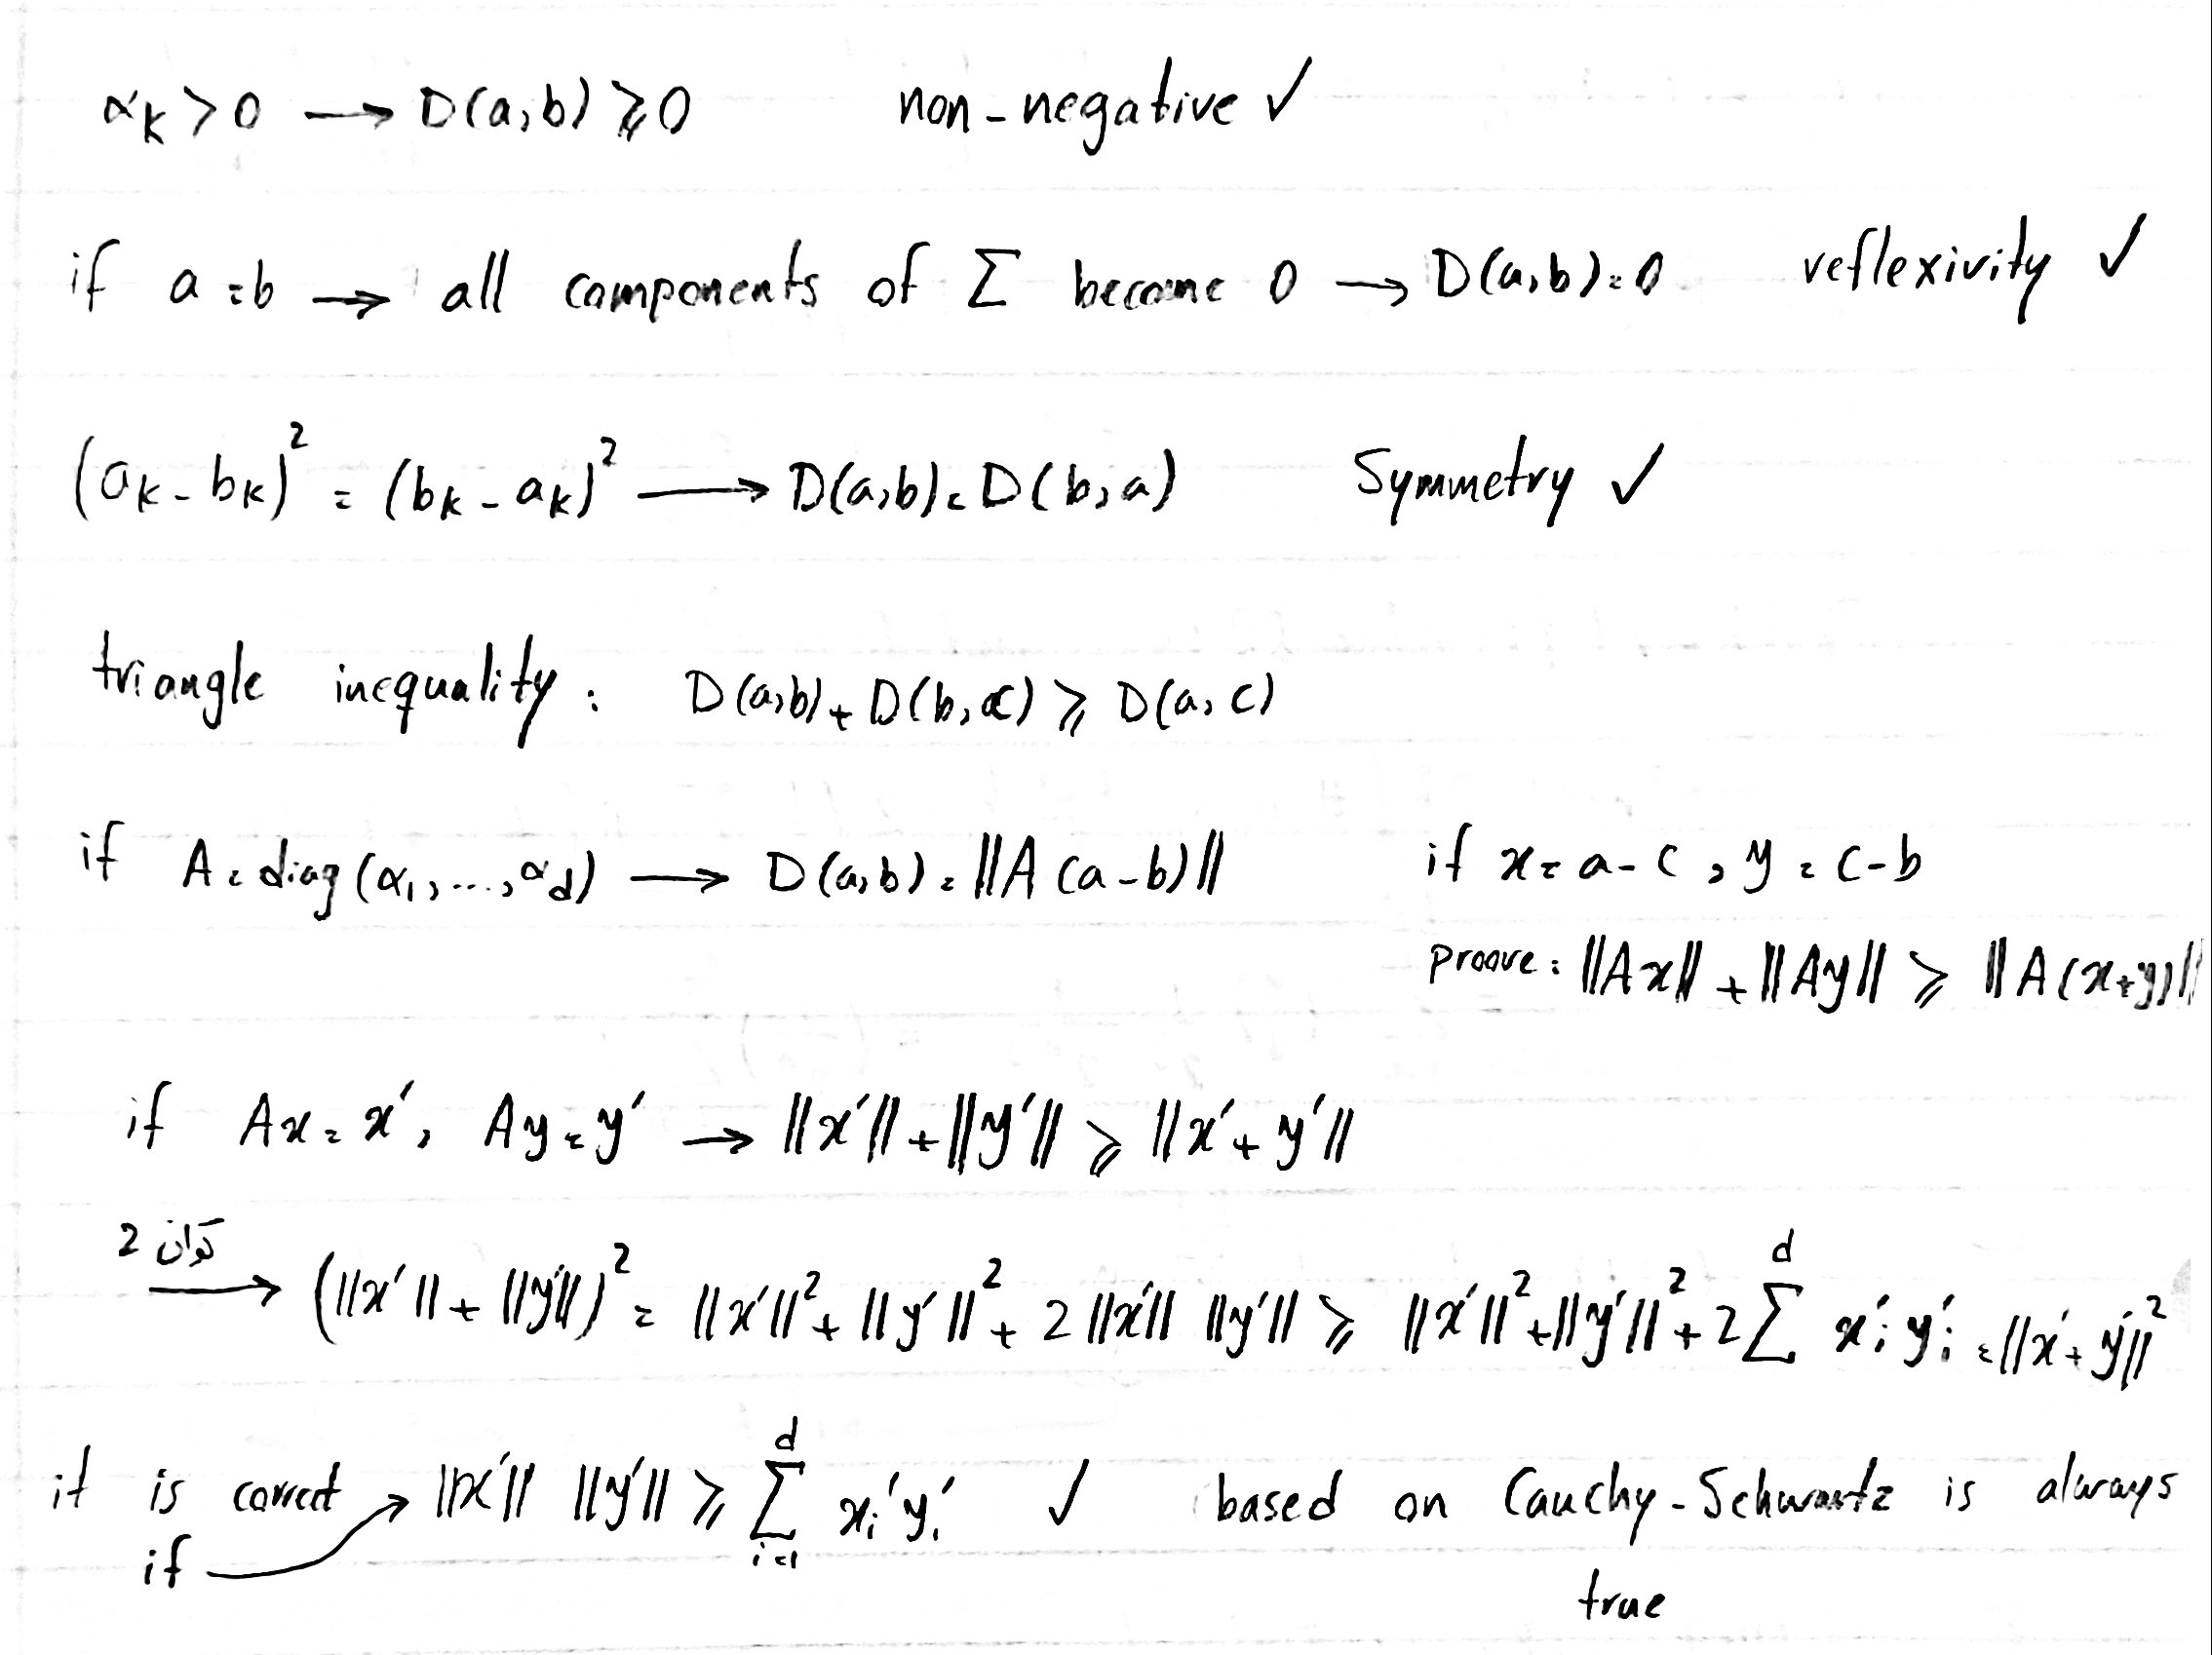 αk > 0 → D(a,b) ⩾ 0 non-negative ✓
if a = b → all components of Σ become 0 → D(a,b) = 0 reflexivity ✓
(ak - bk)² = (bk - ak)² → D(a,b) = D(b,a) Symmetry ✓
triangle inequality : D(a,b) + D(b,c) ⩾ D(a,c)
if A = diag(α1, ..., αd) → D(a,b) = ||A(a-b)|| if x = a-c , y = c-b
proove: ||Ax|| + ||Ay|| ⩾ ||A(x+y)||
if Ax = x′, Ay = y′ → ||x′|| + ||y′|| ⩾ ||x′ + y′||
توان 2 → (||x′|| + ||y′||)² = ||x′||² + ||y′||² + 2||x′|| ||y′|| ⩾ ||x′||² + ||y′||² + 2 Σ^d x′i y′i = ||x′ + y′||²
it is correct if → ||x′|| ||y′|| ⩾ Σ_{i=1}^d xi′ yi′ ✓ based on Cauchy-Schwartz is always
true